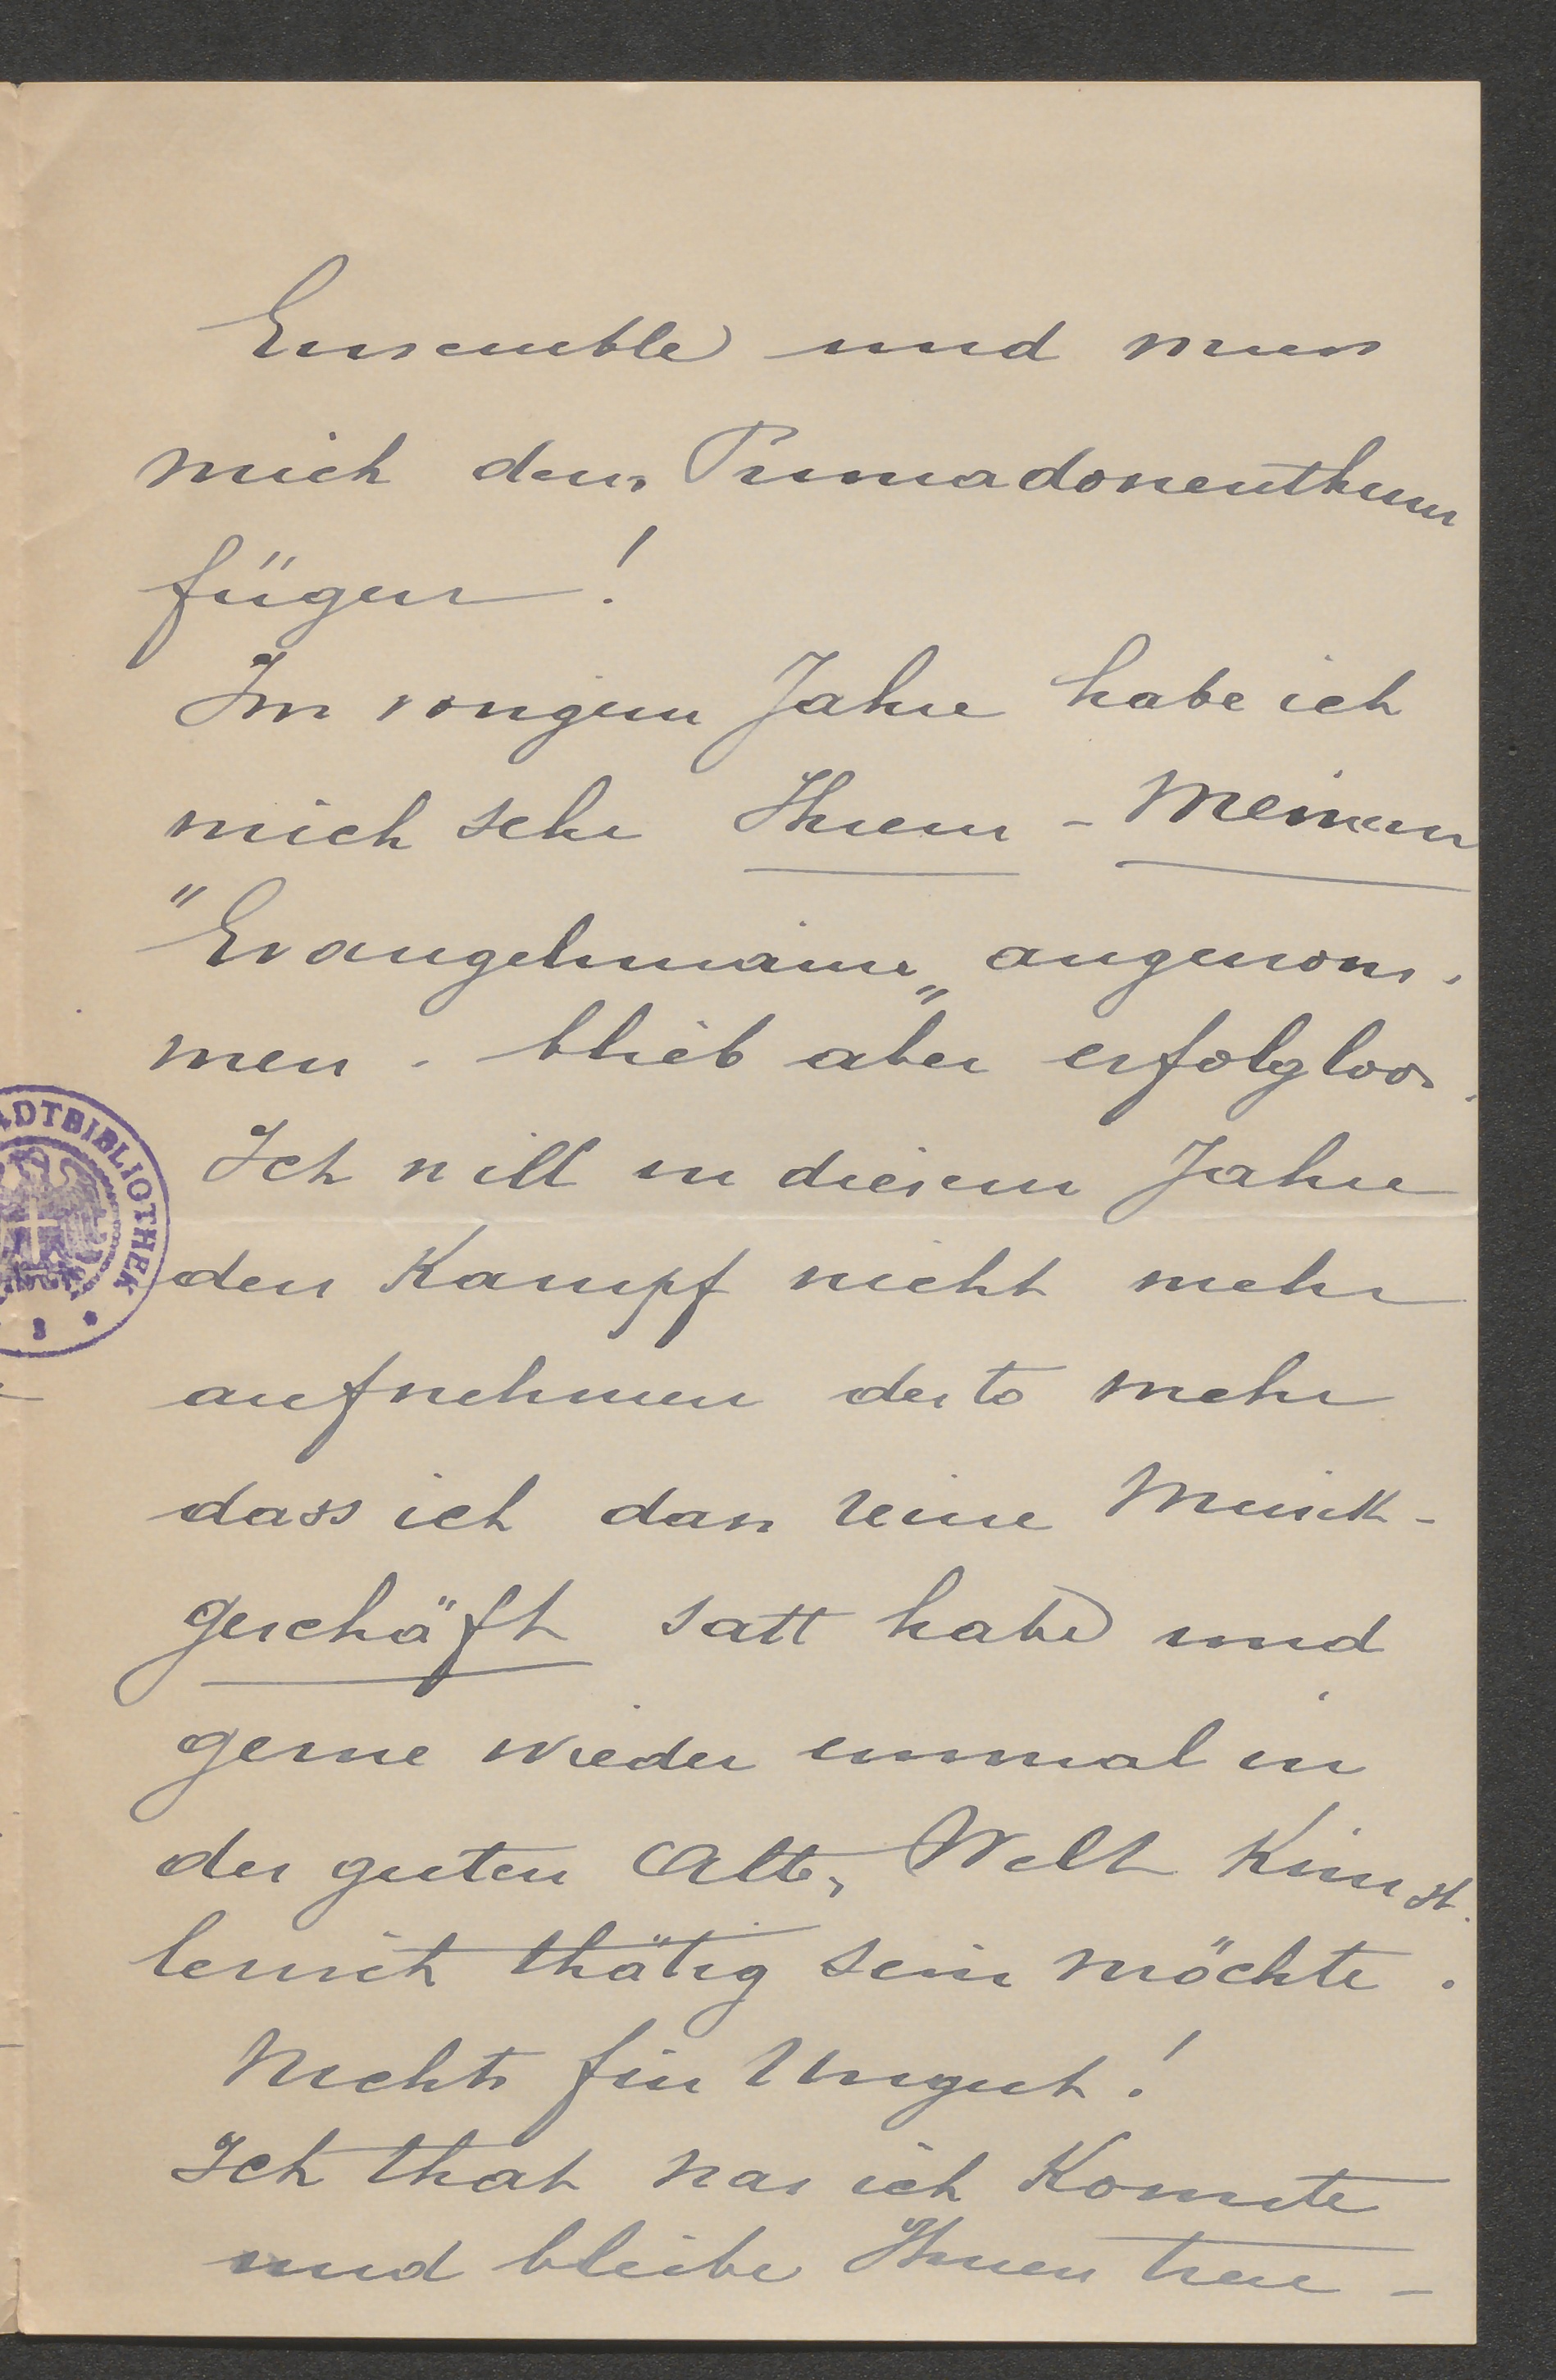 Ensemble und muss
mich dem Primadonenthum
fügen!
Im vorigem Jahre habe ich
mich sehr Ihrem - Meinem
"Evangelimann„ angenom-
men. blieb aber erfolgloos.
Ich will in diesem Jahre
den Kampf nicht mehr
aufnehmen desto mehr
dass ich das reine Musik-
geschäft satt habe und
gerne wieder einmal in
der guten Alten Welt Künst-
lerisch thätig sein möchte.
Nichts für Ungut!
Ich that was ich Konnte
und bleibe Ihnen treu -
ADTBIBLIOTHEK